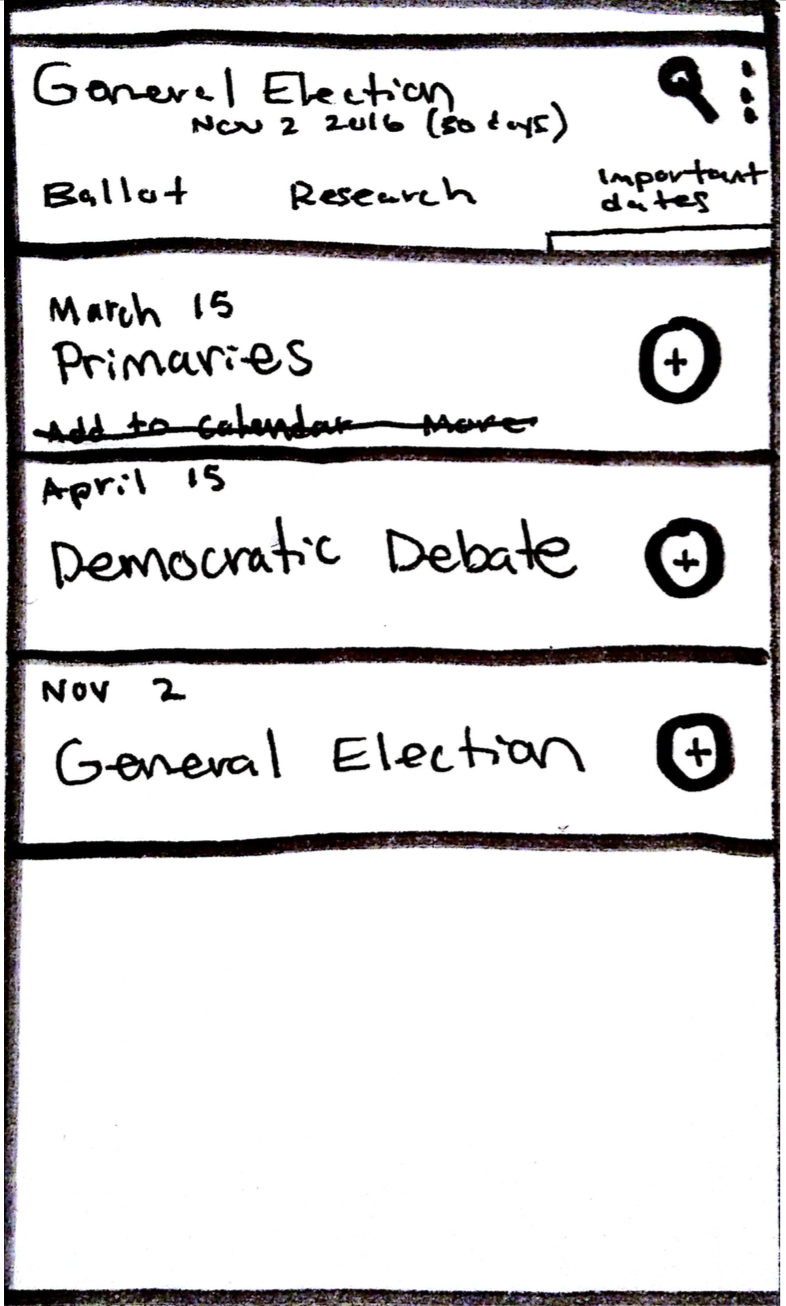 General Election
Nov 2 2016 (30 days)
Ballot Research Important dates
March 15
Primaries
+
Add to Calendar More
April 15
Democratic Debate
+
Nov 2
General Election
+